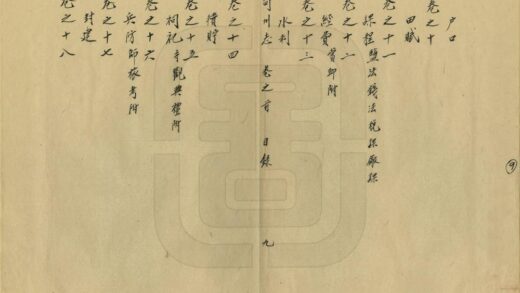 ⑨
戶口
卷之十
田賦
卷之十一
課程鹽法錢法稅課廠課
卷之十二
經費賞卹附
卷之十三
水利
州志 卷之首 目錄 九
卷之十四
積貯
卷之十五
祠祀寺觀典禮附
卷之十六
兵防師旅考附
卷之十七
封建
卷之十八